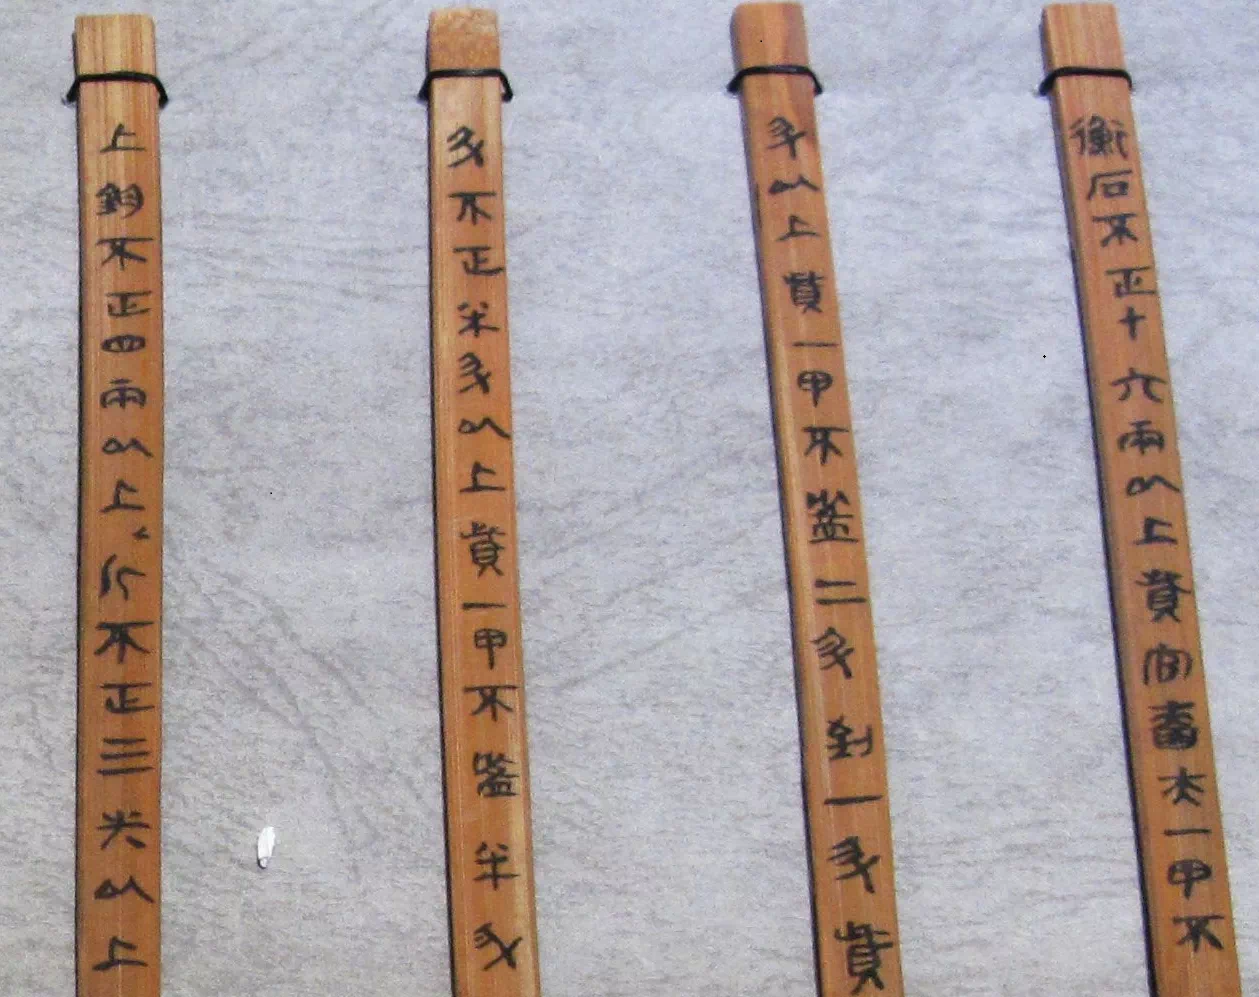 衡石不正十六兩以上貲官嗇夫一甲不
升以上貲一甲不盈二升到一升貲
斗不正半升以上貲一甲不盈半升
上鈞不正四兩以上斤不正三朱以上